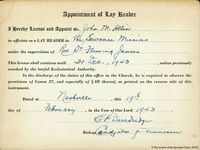 Appointment of Lay Reader
I hereby License and Appoint Mr. John M. Allin
to officiate as a LAY READER in The Sewanee Missions
under the supervision of Rev Dr. Fleming James
This license shall continue until 31 Dec., 1943 unless previously
revoked by the lawful Ecclesiastical Authority.
In the discharge of the duties of this office in the Church, he is required to observe the
provisions of Canon 27, and especially of § (of same), as printed on the reverse side of
this instrument.
Dated at Nashville this 19th
day of February in the Year of our Lord 1943
Bishop